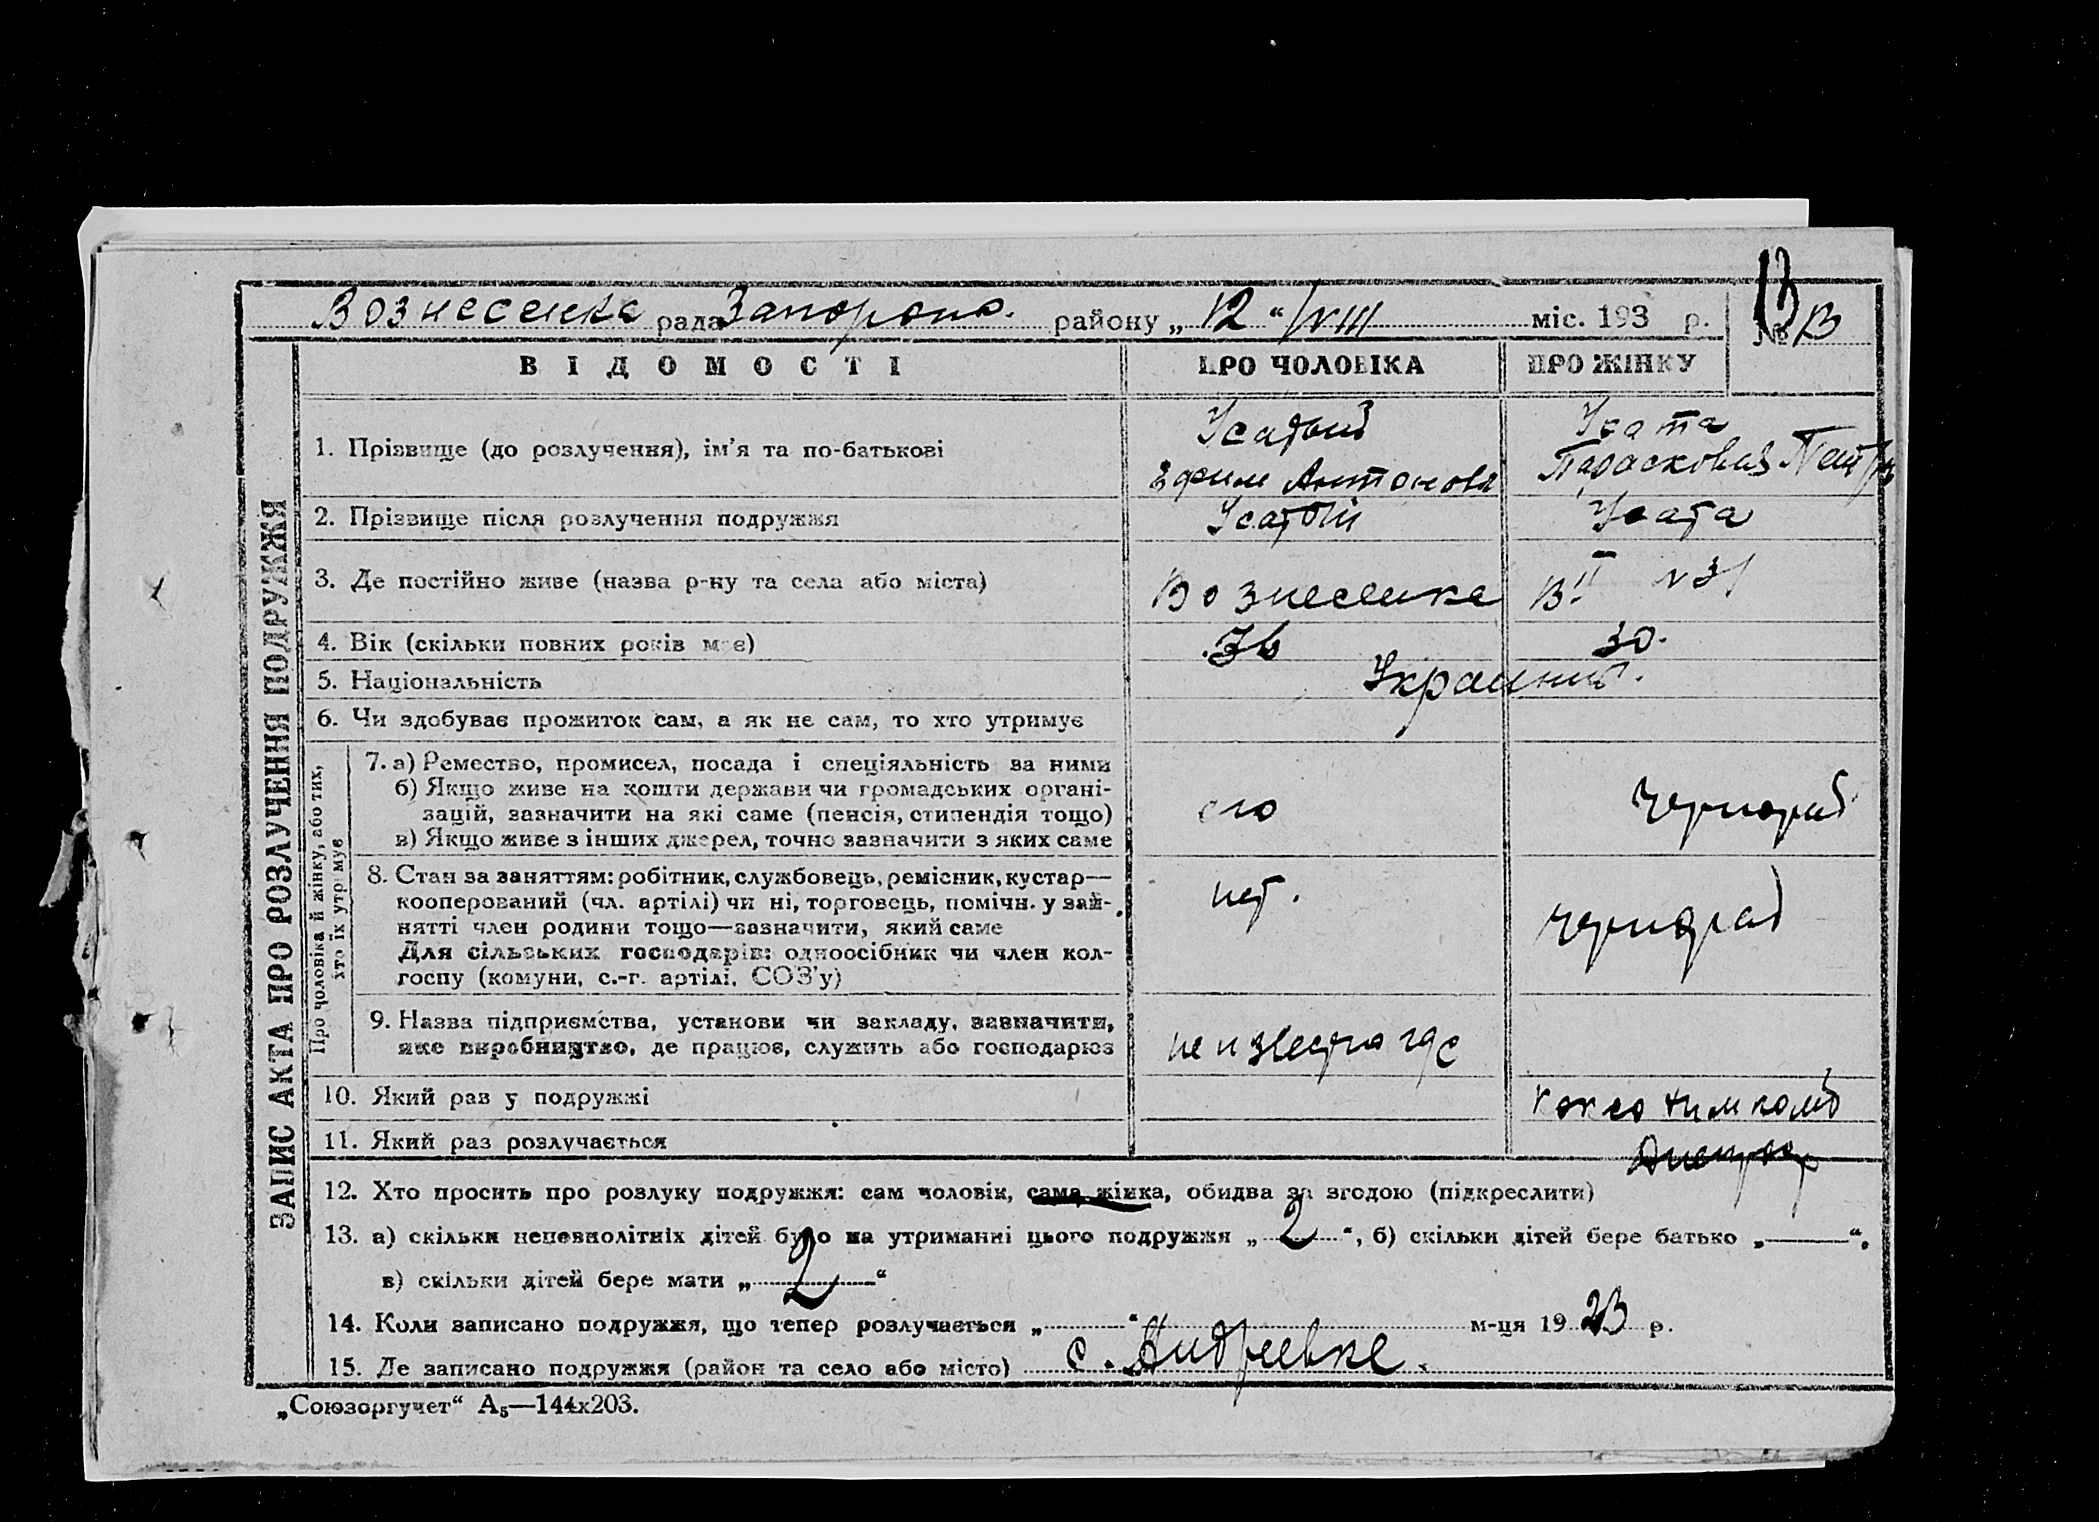 Вознесенка рада Запорож. району „ 12 “ /VIII міс. 193 р.
13
№ 13
ВІДОМОСТІ
ПРО ЧОЛОВІКА
ПРО ЖІНКУ
ЗАПИС АКТА ПРО РОЗЛУЧЕННЯ ПОДРУЖЖЯ
1. Прізвище (до розлучення), ім'я та по-батькові
Усатый
Ефим Антонов
Усата
Парасковия Петр
2. Прізвище після розлучення подружжя
Усатый
Усата
3. Де постійно живе (назва р-ну та села або міста)
Вознесенка
31
4. Вік (скільки повних років має)
36
30.
5. Національність
Украинцы.
6. Чи здобуває прожиток сам, а як не сам, то хто утримує
Про чоловіка й жінку, або тих,
хто їх утримує
7. а) Ремество, промисел, посада і спеціяльність за ними
б) Якщо живе на кошти держави чи громадських органі-
зацій, зазначити на які саме (пенсія, стипендія тощо)
в) Якщо живе з інших джерел, точно зазначити з яких саме
чернораб
8. Стан за заняттям: робітник, службовець, ремісник, кустар—
кооперований (чл. артілі) чи ні, торговець, помічн. у зай-
нятті член родини тощо—зазначити, який саме
Для сільських господарів: одноосібник чи член кол-
госпу (комуни, с.-г. артілі, СОЗ'у)
нет.
чернораб
9. Назва підприємства, установи чи закладу, зазначити,
яке виробництво, де працює, служить або господарює
не известно где
10. Який раз у подружжі
Коксохимкомб
11. Який раз розлучається
12. Хто просить про розлуку подружжя: сам чоловік, сама жінка, обидва за згодою (підкреслити)
13. а) скільки неповнолітніх дітей було на утриманні цього подружжя „ 2 “, б) скільки дітей бере батько „ — “,
в) скільки дітей бере мати „ 2 “
14. Коли записано подружжя, що тепер розлучається „ “ м-ця 19 23 р.
15. Де записано подружжя (район та село або місто) с. Андреевке
„Союзоргучет“ А5—144х203.